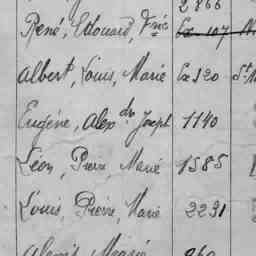 2866
René, Edouard, Fréd Ex 107
Albert, Louis, Marie Ex 320 St
Eugène, Alexdre Joseph 1140
Léon, Pierre Marie 1585
Louis, Pierre, Marie 2231
Alexis Marie 860